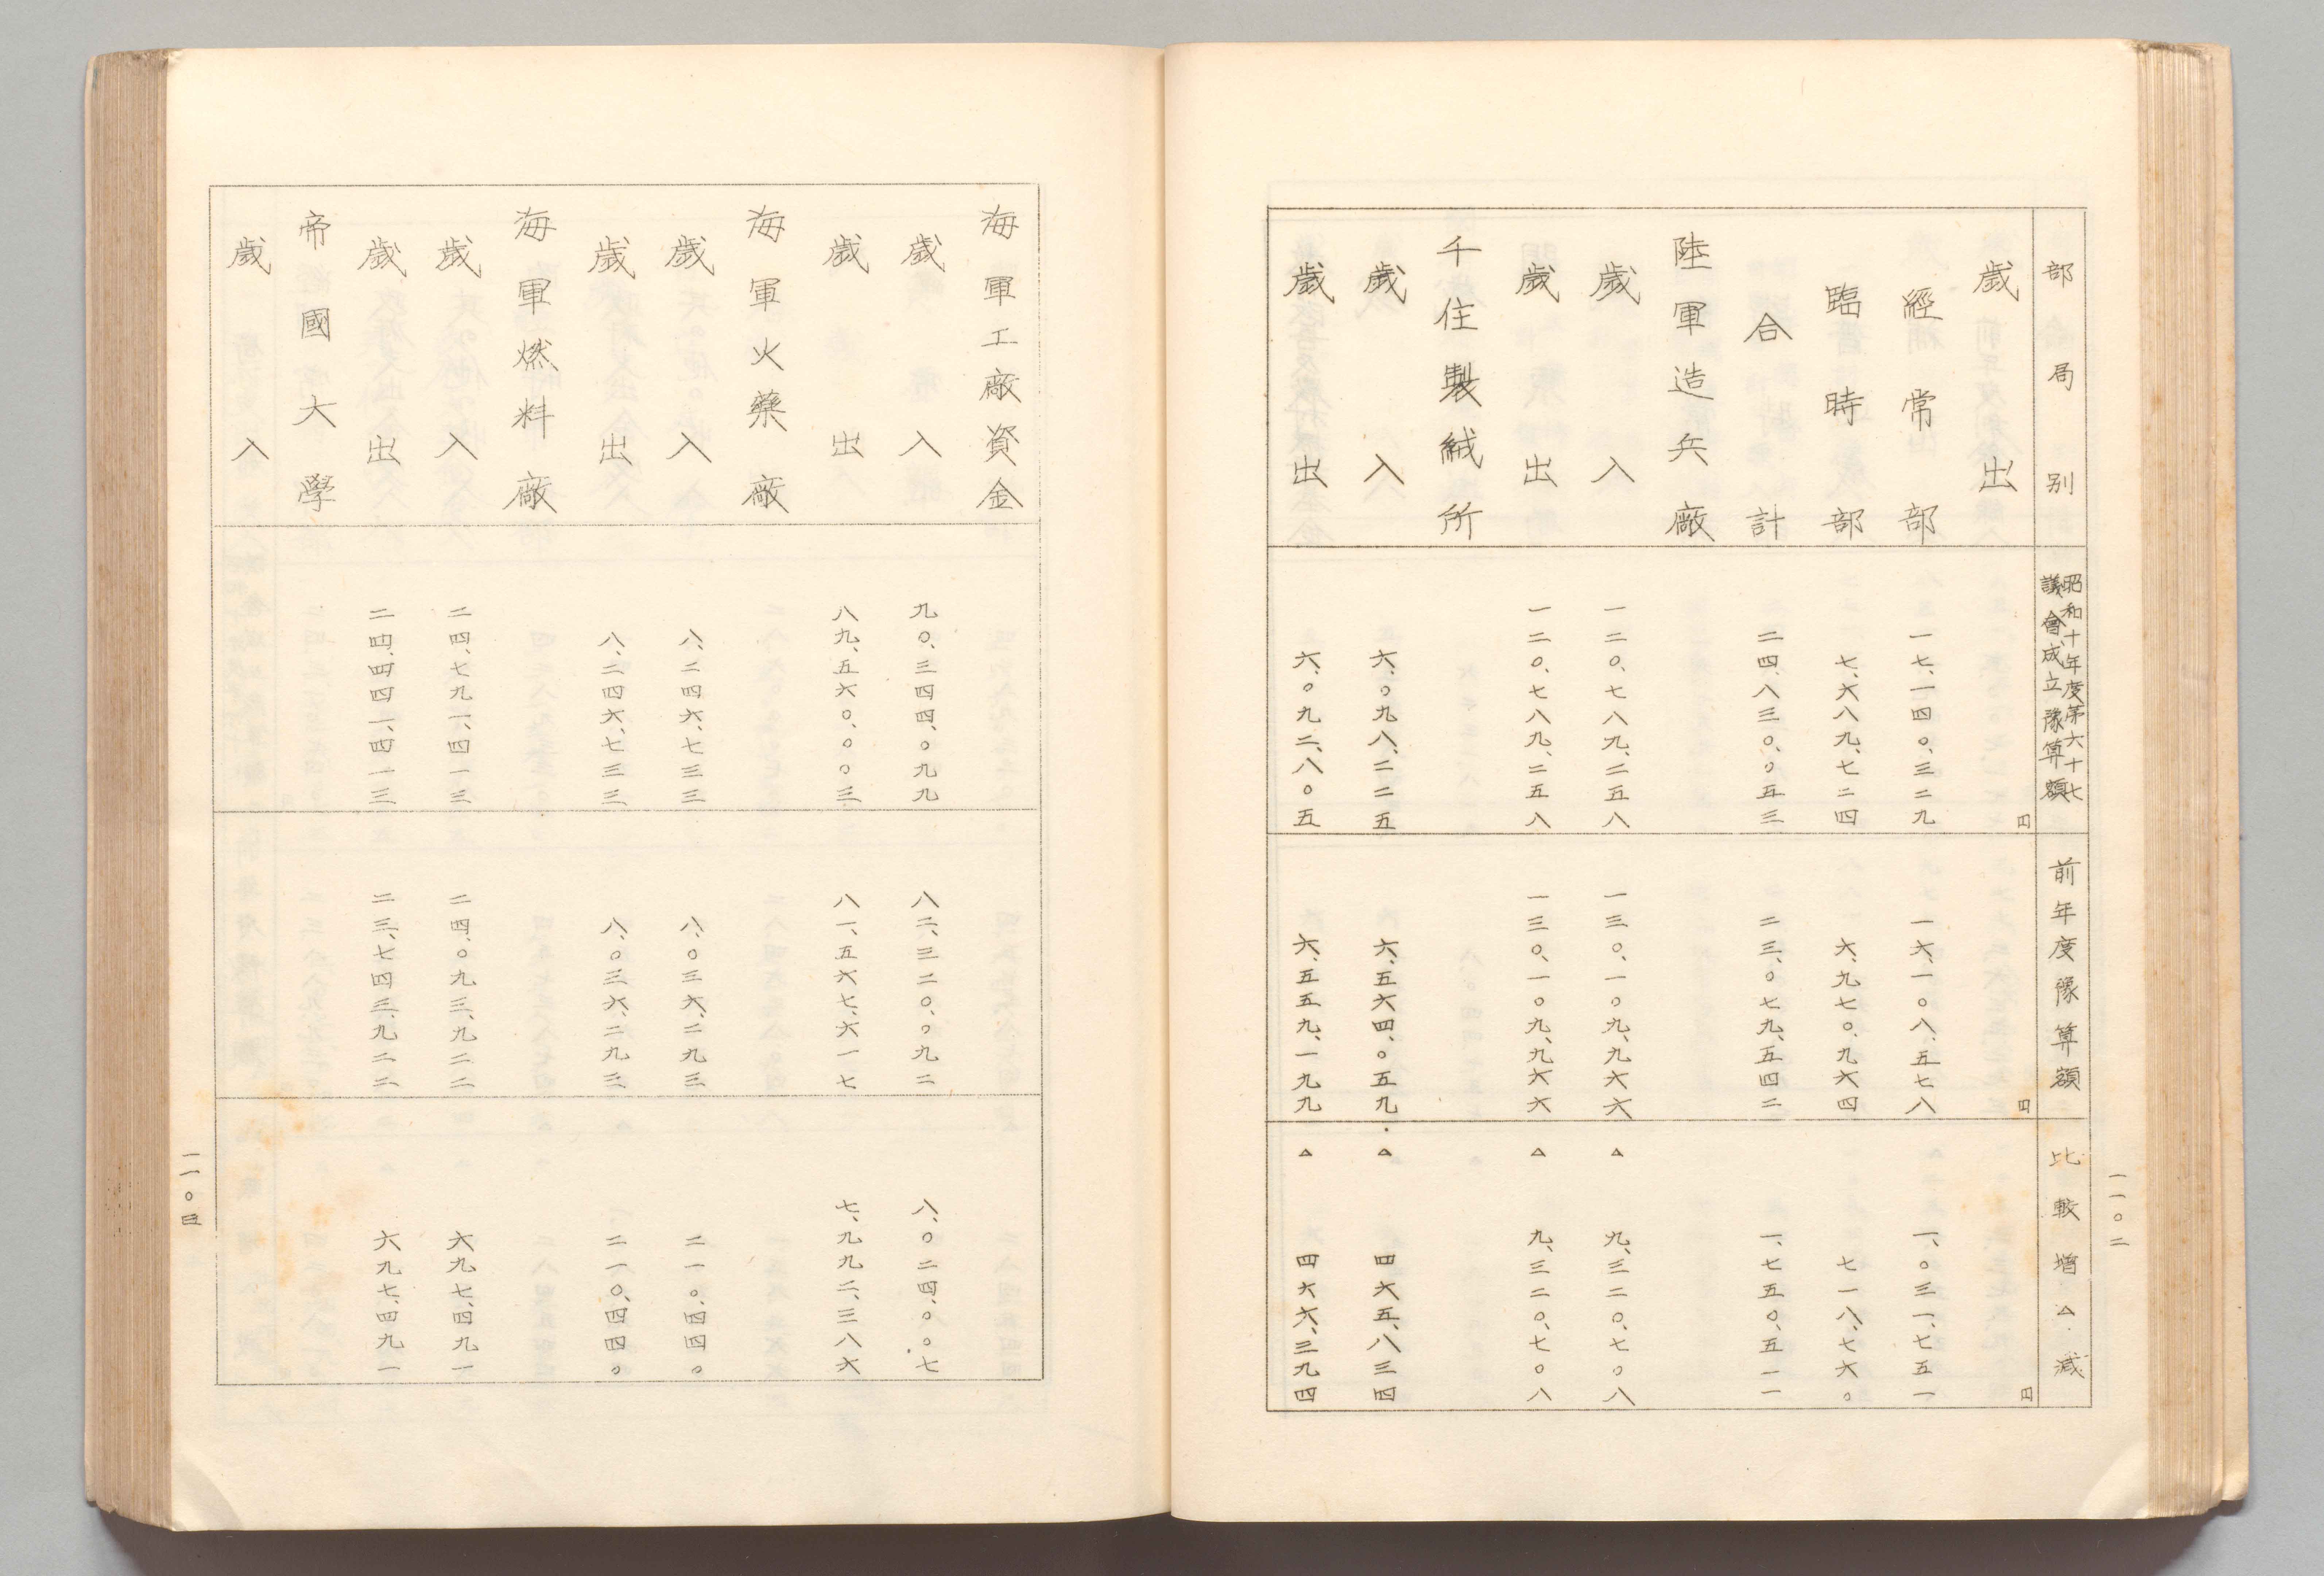 一一〇二
部局別 昭和十年度第六十七議會成立豫算額 前年度豫算額 比較増△減
歳出 円 円 円
經常部 一七、一四〇、三二九 一六、一〇八、五七八 一、〇三一、七五一
臨時部 七、六八九、七二四 六、九七〇、九六四 七一八、七六〇
合計 二四、八三〇、〇五三 二三、〇七九、五四二 一、七五〇、五一一
陸軍造兵廠
歳入 一二〇、七八九、二五八 一三〇、一〇九、九六六 △ 九、三二〇、七〇八
歳出 一二〇、七八九、二五八 一三〇、一〇九、九六六 △ 九、三二〇、七〇八
千住製絨所
歳入 六、〇九八、二二五 六、五六四、〇五九 △ 四六五、八三四
歳出 六、〇九二、八〇五 六、五五九、一九九 △ 四六六、三九四
海軍工廠資金
歳入 九〇、三四四、〇九九 八二、三二〇、〇九二 八、〇二四、〇〇七
歳出 八九、五六〇、〇〇三 八一、五六七、六一七 七、九九二、三八六
海軍火藥廠
歳入 八、二四六、七三三 八、〇三六、二九三 二一〇、四四〇
歳出 八、二四六、七三三 八、〇三六、二九三 二一〇、四四〇
海軍燃料廠
歳入 二四、七九一、四一三 二四、〇九三、九二二 六九七、四九一
歳出 二四、四四一、四一三 二三、七四三、九二二 六九七、四九一
帝國大學
歳入
一一〇三